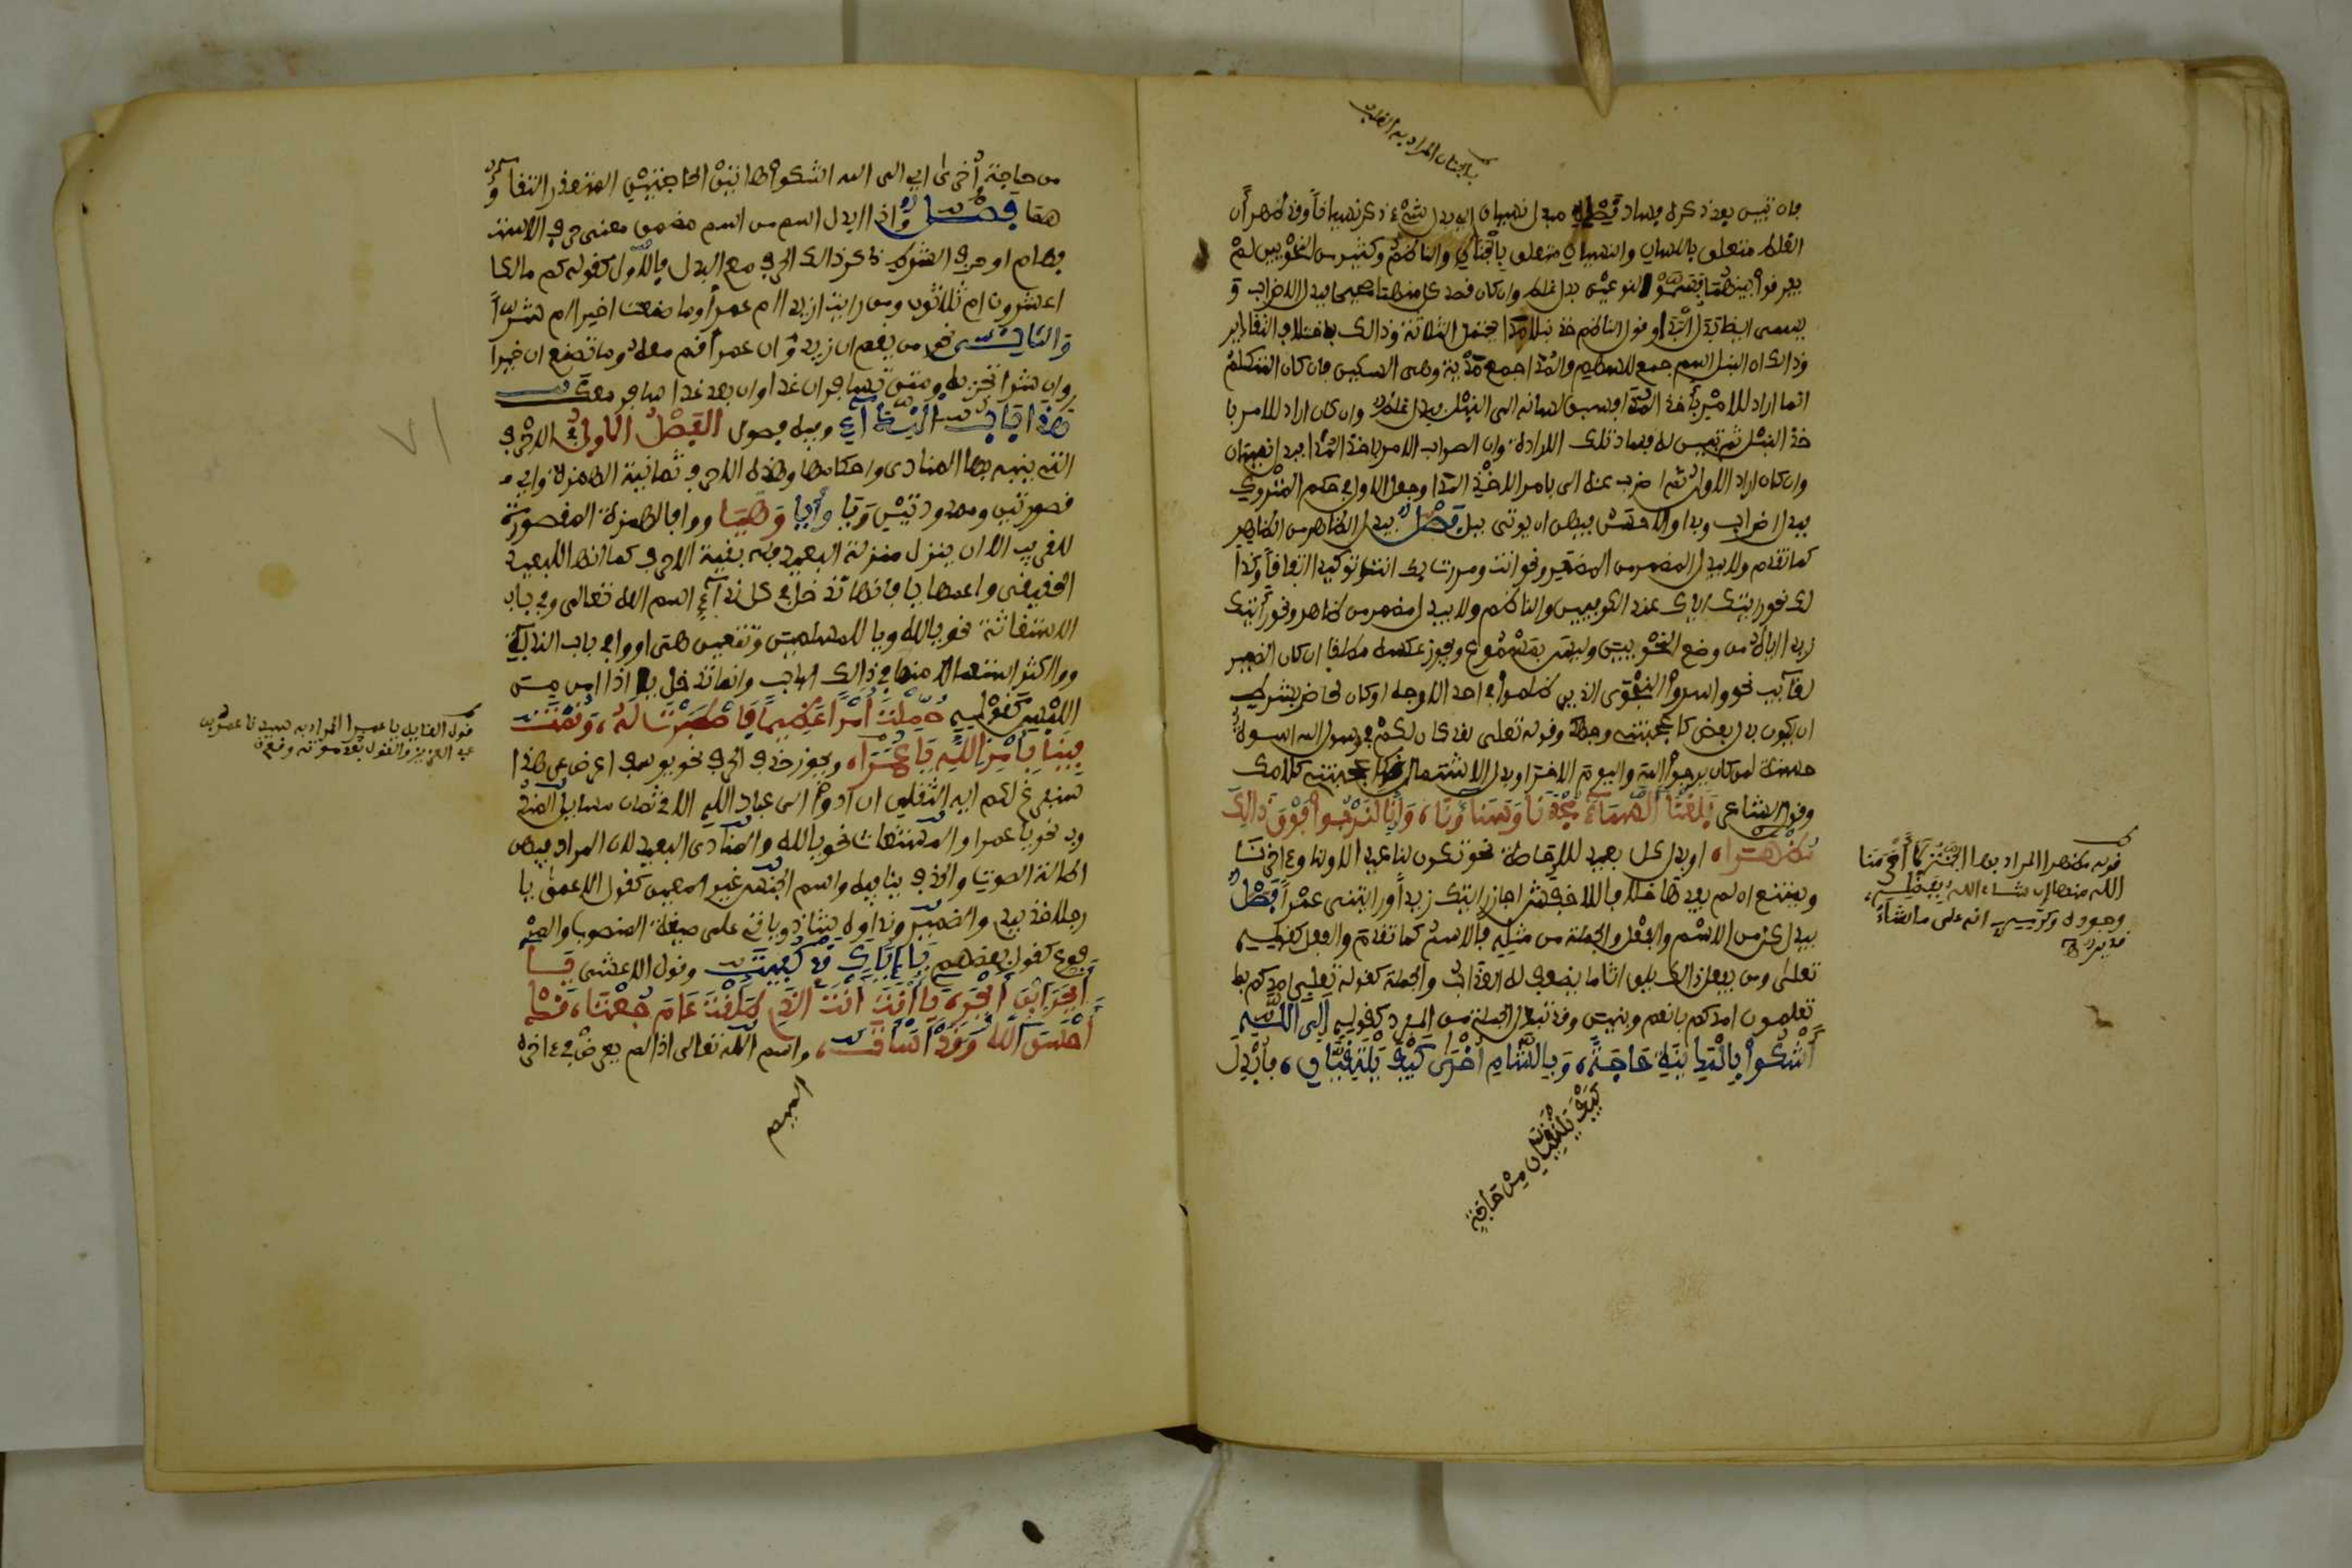 بالجنان المراد به القلب
فان تبين بعد ذكره فساد قصده فبدل نسيان اي بدل شيء ذكر نسيانا وقد ظهر أن
الغلط متعلق باللسان والنسيان متعلق بالجنان والناظم وكثير من النحويين لم
يفرقوا بينهما فسموا النوعين بدل غلط وان كان قصد كل منهما صحيحا فبدل الاضراب و
يسمى ايضا بدل البدا وقول الناظم خذ نبلا مدا يحتمل الثلاثة وذالك باختلاف التقادير
وذالك ان النبل اسم جمع للسهم والمدا جمع مدية وهي السكين فان كان المتكلم
انما اراد الامر باخذ المدا فسبق لسانه الى النبل فبدل غلط وان كان اراد الامر با
خذ النبل ثم تبين له فساد تلك الارادة وان الصواب الامر باخذ المدا فبدل نسيان
وان كان اراد الاول ثم اضرب عنه الى الامر باخذ المدا وجعل الاول في حكم المتروك
فبدل اضراب وبدا والاحسن فيهن ان يوتى ببل فصل يبدل الظاهر من الظاهر
كما تقدم ولا يبدل المضمر من المضمر ونحو قمت انت ومررت بك انت توكيد اتفاقا وكذا
لك نحو رايتك اياك عند الكوفيين والناظم ولا يبدل مضمر من ظاهر ونحو رأيت
زيدا اياه من وضع النحويين وليس بمسموع ويجوز عكسه مطلقا ان كان الضمير
لغائب نحو واسروا النجوى الذين ظلموا في احد الاوجه او كان لحاضر بشرط
ان يكون بدل بعض كاعجبتني وجهك وقوله تعلى لقد كان لكم في رسول الله اسوة
حسنة لمن كان يرجوا الله واليوم الاخر او بدل اشتمال كاعجبتني كلامك
وقول الشاعر بلغنا السماء مجدنا وسناؤنا، وانا لنرجوا فوق ذالك
مظهرا، او بدل كل مفيد للاحاطة نحو تكون لنا عيدا لاولنا وءاخرنا
ويمتنع ان لم يفدها خلافا للاخفش اجاز رايتك زيدا ورايتني عمرا فصل
يبدل كل من الاسم والفعل والجملة من مثله فالاسم كما تقدم والفعل كقوله
تعلى ومن يفعل ذالك يلق اثاما يضعف له العذاب والجملة كقوله تعلى امدكم بما
تعلمون امدكم بانعم وبنين وقد تبدل الجملة من المفرد كقوله الى الله
أشكوا بالمدينة حاجة، وبالشام أخرى كيف يلتقيان، فابدل
كيف يلتقيان من حاجة
قوله مظهرا المراد بها الجنة كما
الله منها ان شاء الله بفضله
وجوده وكرمه انه على ما يشاء
قدير
من حاجة أخرى اي الى الله اشكوا هاتين الحاجتين المتعذر التقاؤ
هما فصل واذا ابدل اسم من اسم مضمن معنى حرف الاست
فهام او حرف الشرط ذكر ذالك الحرف مع البدل فالاول كقوله كم مالك
اعشرون ام ثلاثون ومن رايت ازيدا ام عمرا وما صنعت اخيرا ام شرا
والثاني نحو من يقم ان زيد وان عمر أقم معه وما تصنع ان خيرا
وان شرا تجز به ومتى تسافر ان غدا وان بعد غد اسافر معك
هذا باب النداء وفيه فصول الفصل الاول في الاحرف
التي ينبه بها المنادى واحكامها وهذه الاحرف ثمانية الهمزة واي م
قصورتين وممدودتين ويا وأيا وهيا ووا فالهمزة المقصورة
للقريب الا ان ينزل منزلة البعيد فله بقية الاحرف كما انها للبعيد
الحقيقي واعمها يا فانها تدخل في كل نداء اسم الله تعالى وفي باب
الاستغاثة نحو يالله ويا للمسلمين وتتعين هي او وا في باب الندبة
ووا اكثر استعمالا منها في ذالك الباب وانما تدخل يا اذا امن
اللبس كقوله حملت أمرا عظيما فاصطبرت له، وقمت
فينا بأمر الله يا عمرا، ويجوز حذف الحرف نحو يوسف اعرض عن هذا
سنفرغ لكم ايه الثقلن ان ادوا الى عباد الله الا في ثمان مسايل المند
وب نحو يا عمرا والمستغاث نحو يالله والمنادى البعيد لان المراد فيهن
اطالة الصوت والحذف ينافيه واسم الجنس غير المعين كقول الاعمى يا
رجلا خذ بيدي والضمير ونداوه شاذ وياتي على صيغة المنصوب والمر
فوع كقول بعضهم يا إياك قد كفيتك وقول الاعشى يا
أبجر ابن أبجر يا أنت، أنت الذي طلقت عام جعتا، قد
أحسن الله وقد أسأتا، واسم الله تعالى اذا لم يعوض في ءاخره
الميم
قول القايل يا عمرا المراد به سيدنا عمر بن
عبد العزيز والقول بعد موته وقع
٧١